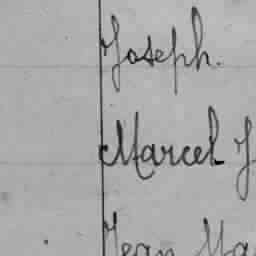 Joseph.
Marcel J
Jean Ma